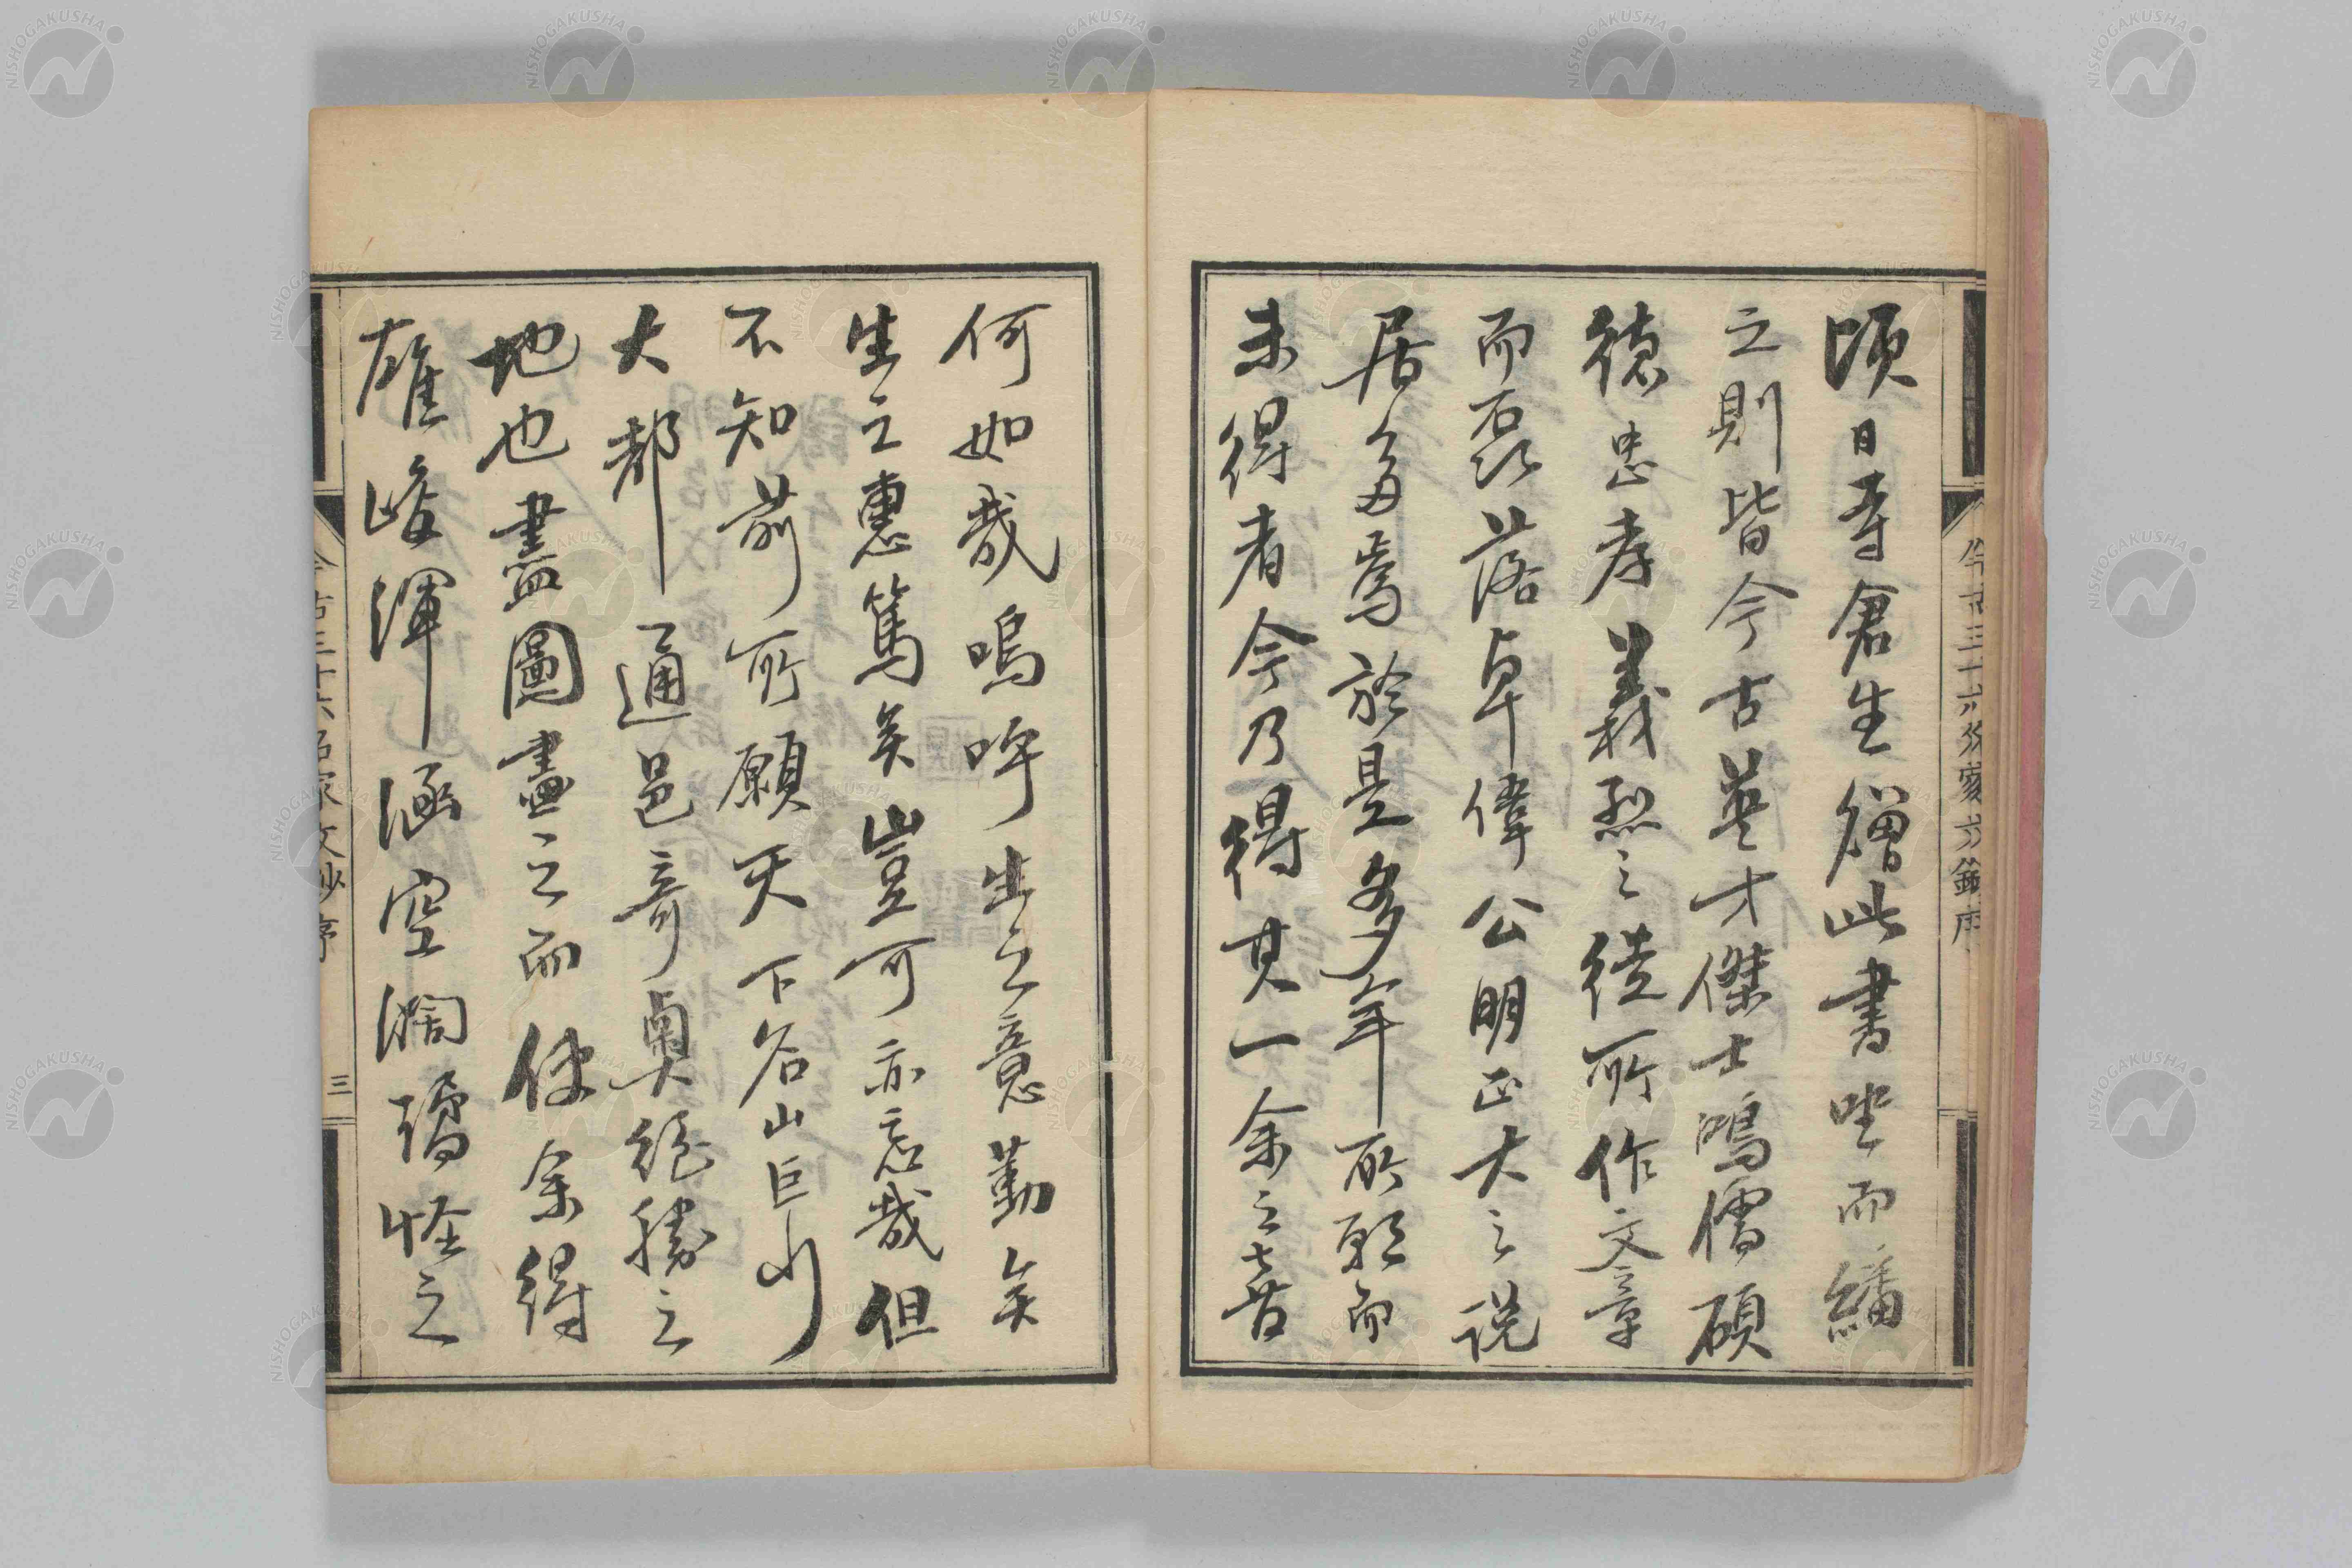 頃日寺倉生贈此書坐而繙
之則皆今古英才傑士鴻儒碩
德忠孝義烈之徒所作文章
而磊落卓偉公明正大之說
居多焉於是多年所願而
未得者今乃得其一余之喜
何如哉嗚呼生之意勤矣
生之惠篤矣豈可亦忘哉但
不知前所願天下名山巨川
大都通邑奇奧絕勝之
地也畫圖畫之而使余得
雄峻渾涵空濶譎怪之
今古三十六名家文鈔序
三
NISHOGAKUSHA